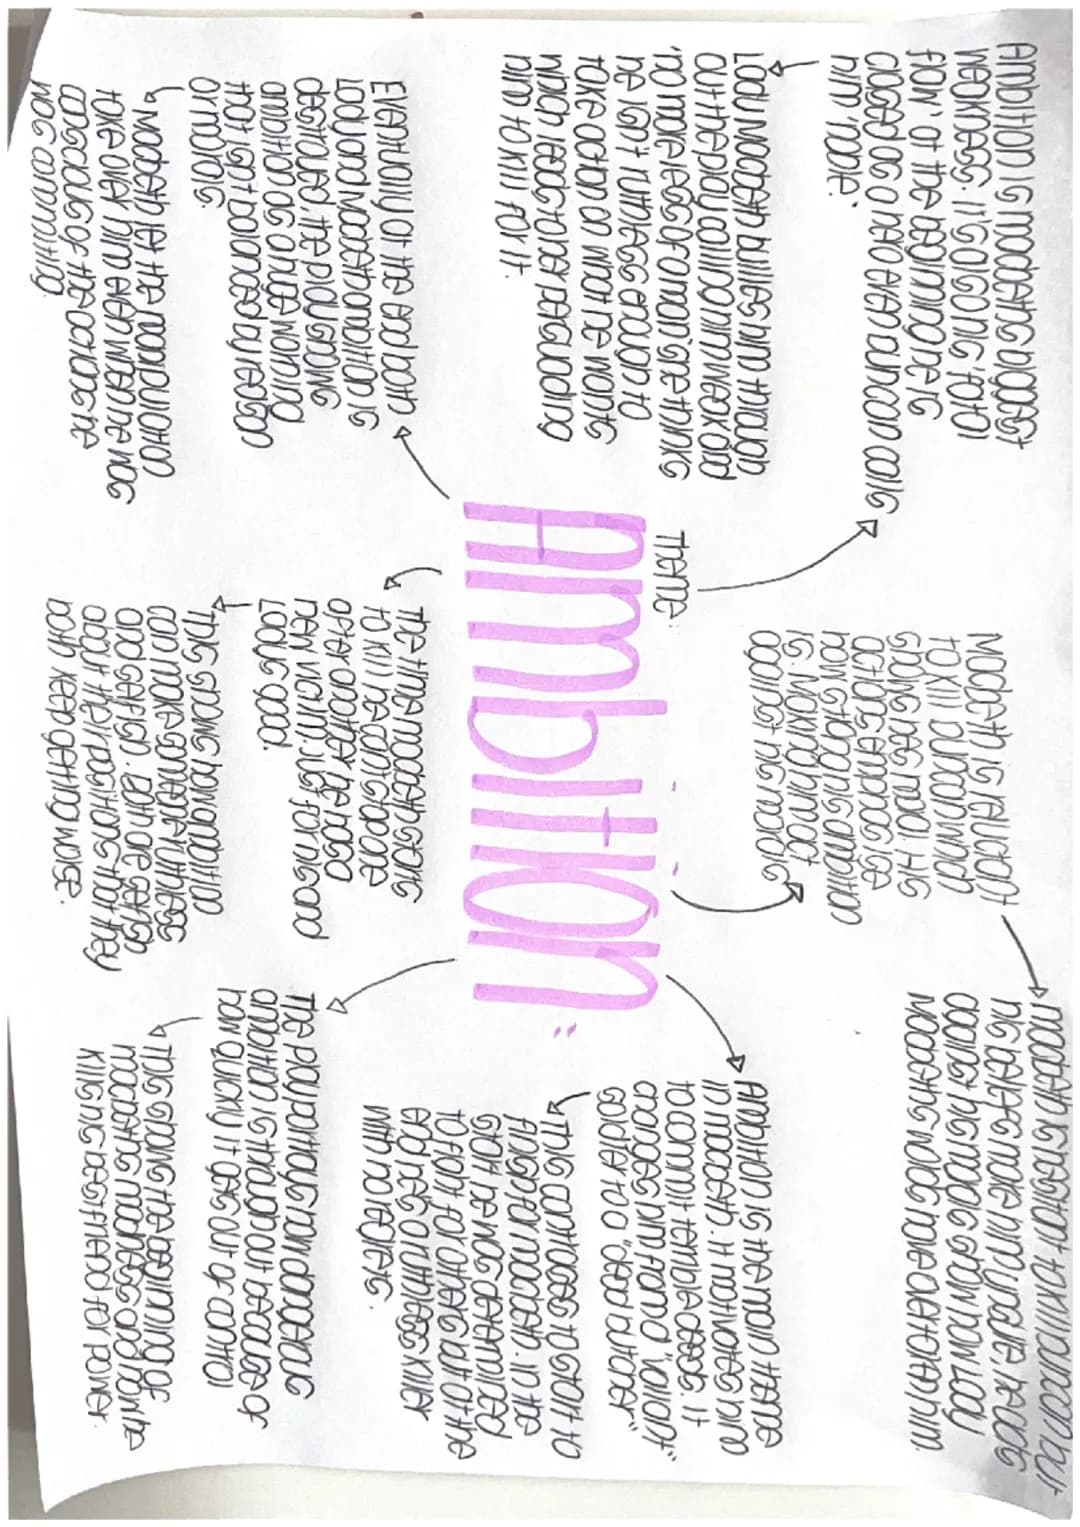 Ambition is macbeths biggest
weakness. It's going to fatal
flaw'. at the beginning he is
classed as a hero even duncan calls
him 'noble'.
Lady macbeth bullies him through
out the play calling him weak and
'no more less of a man' she thinks
he isn't ruthless enough to
take action on what he wants
which leads to her persuading
him to kill for it.
Eventually at the end both
Lady and Macbeth ambition is
destroyed. the play shows
ambition as a huge warning
that isnt balanced by reason
or morals.
Macbeth let the manipulation
take over him even when he was
conscious of the actions he
was committing.
Theme:
Ambition
Macbeth is reluctant
to kill duncan which
shows he's moral. His
actions empasis
how strong his ambition
is. Making him act
against his morals
macbeth is hesitant to kill duncan but
his desires make him yield, he acts
against his morals show how Lady
macbeths words have overtaken him.
the time macbeth starts
to kill he cant stop one
after another he has a
new victim. just for his and
Lady's good.
This shows how ambition
can make someone ruthless
and selfish. Both are selfish
about their positions that they
both keep getting worse.
Ambition is the main theme
in macbeth. It motivates him
to commit terrible deeds. it
changes him from a "valiant"
soldier to a "dead butcher"
This contrases to start to
finish for macbeth. in the
start he was determined
to fight for others but at the
end he's a ruthless killer
with no regrets.
The play portrays how dangerous
ambition is throughout because of
how quickly it gets out of control
This shows the beginning of
macbeths madness and
kills his best friend for power.